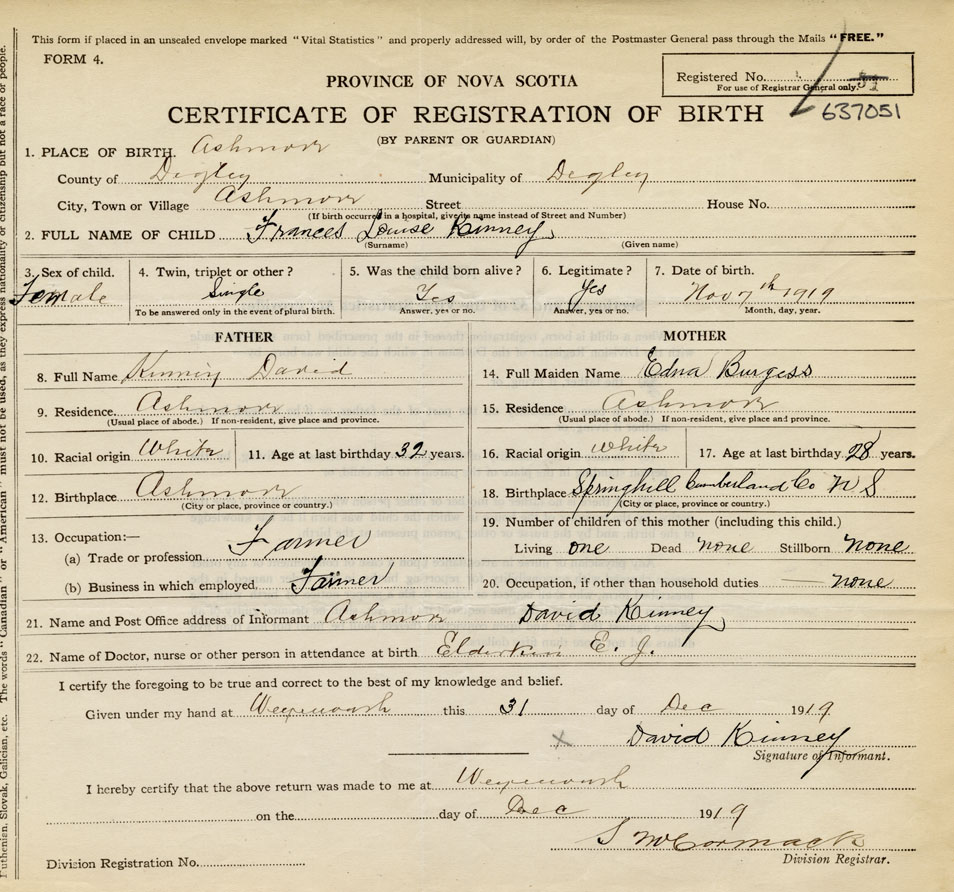 This form if placed in an unsealed envelope marked "Vital Statistics" and properly addressed will, by order of the Postmaster General pass through the Mails "FREE."
FORM 4.
Registered No.
For use of Registrar General only.
637051
PROVINCE OF NOVA SCOTIA
CERTIFICATE OF REGISTRATION OF BIRTH
(BY PARENT OR GUARDIAN)
1. PLACE OF BIRTH. Ashmore
County of Digby Municipality of Digby
City, Town or Village Ashmore Street House No.
(If birth occurred in a hospital, give its name instead of Street and Number)
2. FULL NAME OF CHILD Frances Louise Kinney
(Surname) (Given name)
3. Sex of child. 4. Twin, triplet or other? 5. Was the child born alive? 6. Legitimate? 7. Date of birth.
Female Single Yes Yes Nov 7th 1919
To be answered only in the event of plural birth. Answer, yes or no. Answer, yes or no. Month, day, year.
FATHER MOTHER
8. Full Name Kinney David 14. Full Maiden Name Edna Burgess
9. Residence Ashmore 15. Residence Ashmore
(Usual place of abode.) If non-resident, give place and province. (Usual place of abode.) If non-resident, give place and province.
10. Racial origin White 11. Age at last birthday 32 years. 16. Racial origin White 17. Age at last birthday 28 years.
12. Birthplace Ashmore 18. Birthplace Springhill Cumberland Co N S
(City or place, province or country.) (City or place, province or country.)
13. Occupation:— 19. Number of children of this mother (including this child.)
(a) Trade or profession Farmer Living one Dead none Stillborn none
(b) Business in which employed Farmer 20. Occupation, if other than household duties none
21. Name and Post Office address of Informant Ashmore David Kinney
22. Name of Doctor, nurse or other person in attendance at birth Elderkin E. J.
I certify the foregoing to be true and correct to the best of my knowledge and belief.
Given under my hand at Weymouth this 31 day of Dec 1919
X David Kinney
Signature of Informant.
I hereby certify that the above return was made to me at Weymouth
on the day of Dec 1919
S McCormack
Division Registrar.
Division Registration No.
The words "Canadian" or "American" must not be used, as they express nationality or citizenship but not a race or people.
Ruthenian, Slovak, Galician, etc.